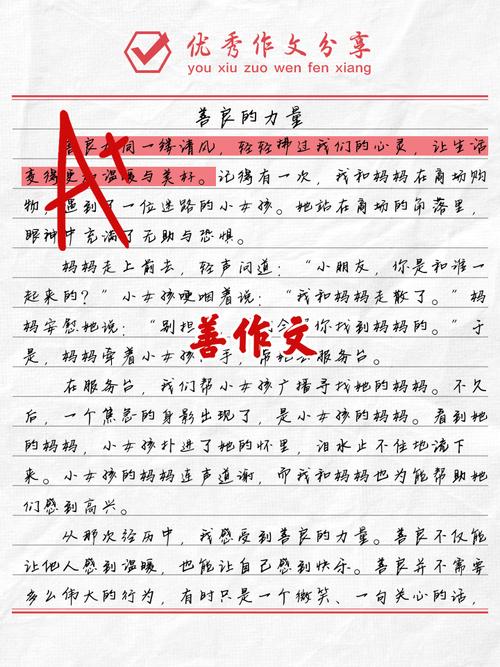 优秀作文分享
you xiu zuo wen fen xiang
善良的力量
A+
善良如同一缕清风，轻轻拂过我们的心灵，让生活
变得更加温暖与美好。记得有一次，我和妈妈在商场购
物，遇到了一位迷路的小女孩。她站在商场的角落里，
眼神中充满了无助与恐惧。
妈妈走上前去，轻声问道：“小朋友，你是和谁一
起来的？”小女孩哽咽着说：“我和妈妈走散了。”妈
妈安慰她说：“别担 你找到妈妈的。”于
是，妈妈牵着小女孩 手， 服务台。
善作文
在服务台，我们帮小女孩广播寻找她的妈妈。不久
后，一个焦急的身影出现了，是小女孩的妈妈。看到她
的妈妈，小女孩扑进了她的怀里，泪水止不住地流下
来。小女孩的妈妈连声道谢，而我和妈妈也为能帮助她
们感到高兴。
从那次经历中，我感受到善良的力量。善良不仅能
让他人感到温暖，也能让自己感到快乐。善良并不需要
多么伟大的行为，有时只是一个微笑、一句关心的话，